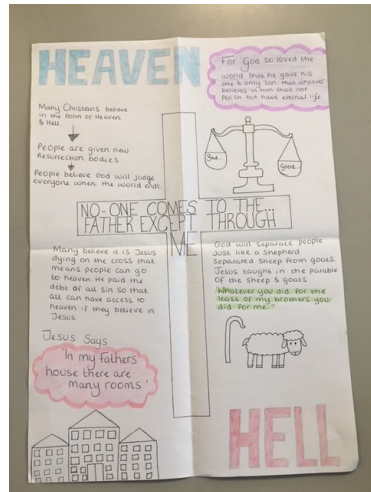 HEAVEN
For God so loved the
world that he gave his
one & only son, that whoever
believes in him shall not
Perish but have eternal life.
Many Christians believe
in the form of Heaven
& Hell.
People are given new
Resurrection bodies.
People believe God will judge
everyone when the world ends.
Bad...
Good...
NO-ONE COMES TO THE...
FATHER EXCEPT THROUGH...
ME
Many believe it is Jesus
dying on the cross that
means people can go
to heaven. He paid the
debt of all sin so that
all can have access to
heaven if they believe in
Jesus.
God will separate people
Just like a Shepherd
Separated Sheep from goats.
Jesus taught in the parable
Of the sheep & goats
"Whatever you did for the
least of my brothers you
did for me."
Jesus Says
'In my fathers
house there are
many rooms.'
HELL